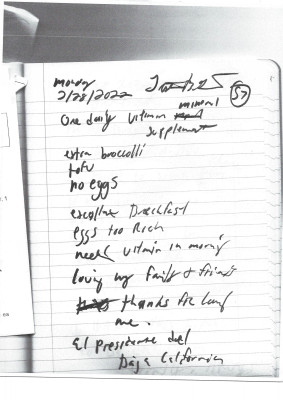 monday
2/28/2022
57
One daily vitamin mineral
supplement
extra broccolli
tofu
no eggs
excellent Breakfast
eggs too Rich
need vitamin in morning
loving my family & friends
thanks for
me.
El presidente del
Baja California